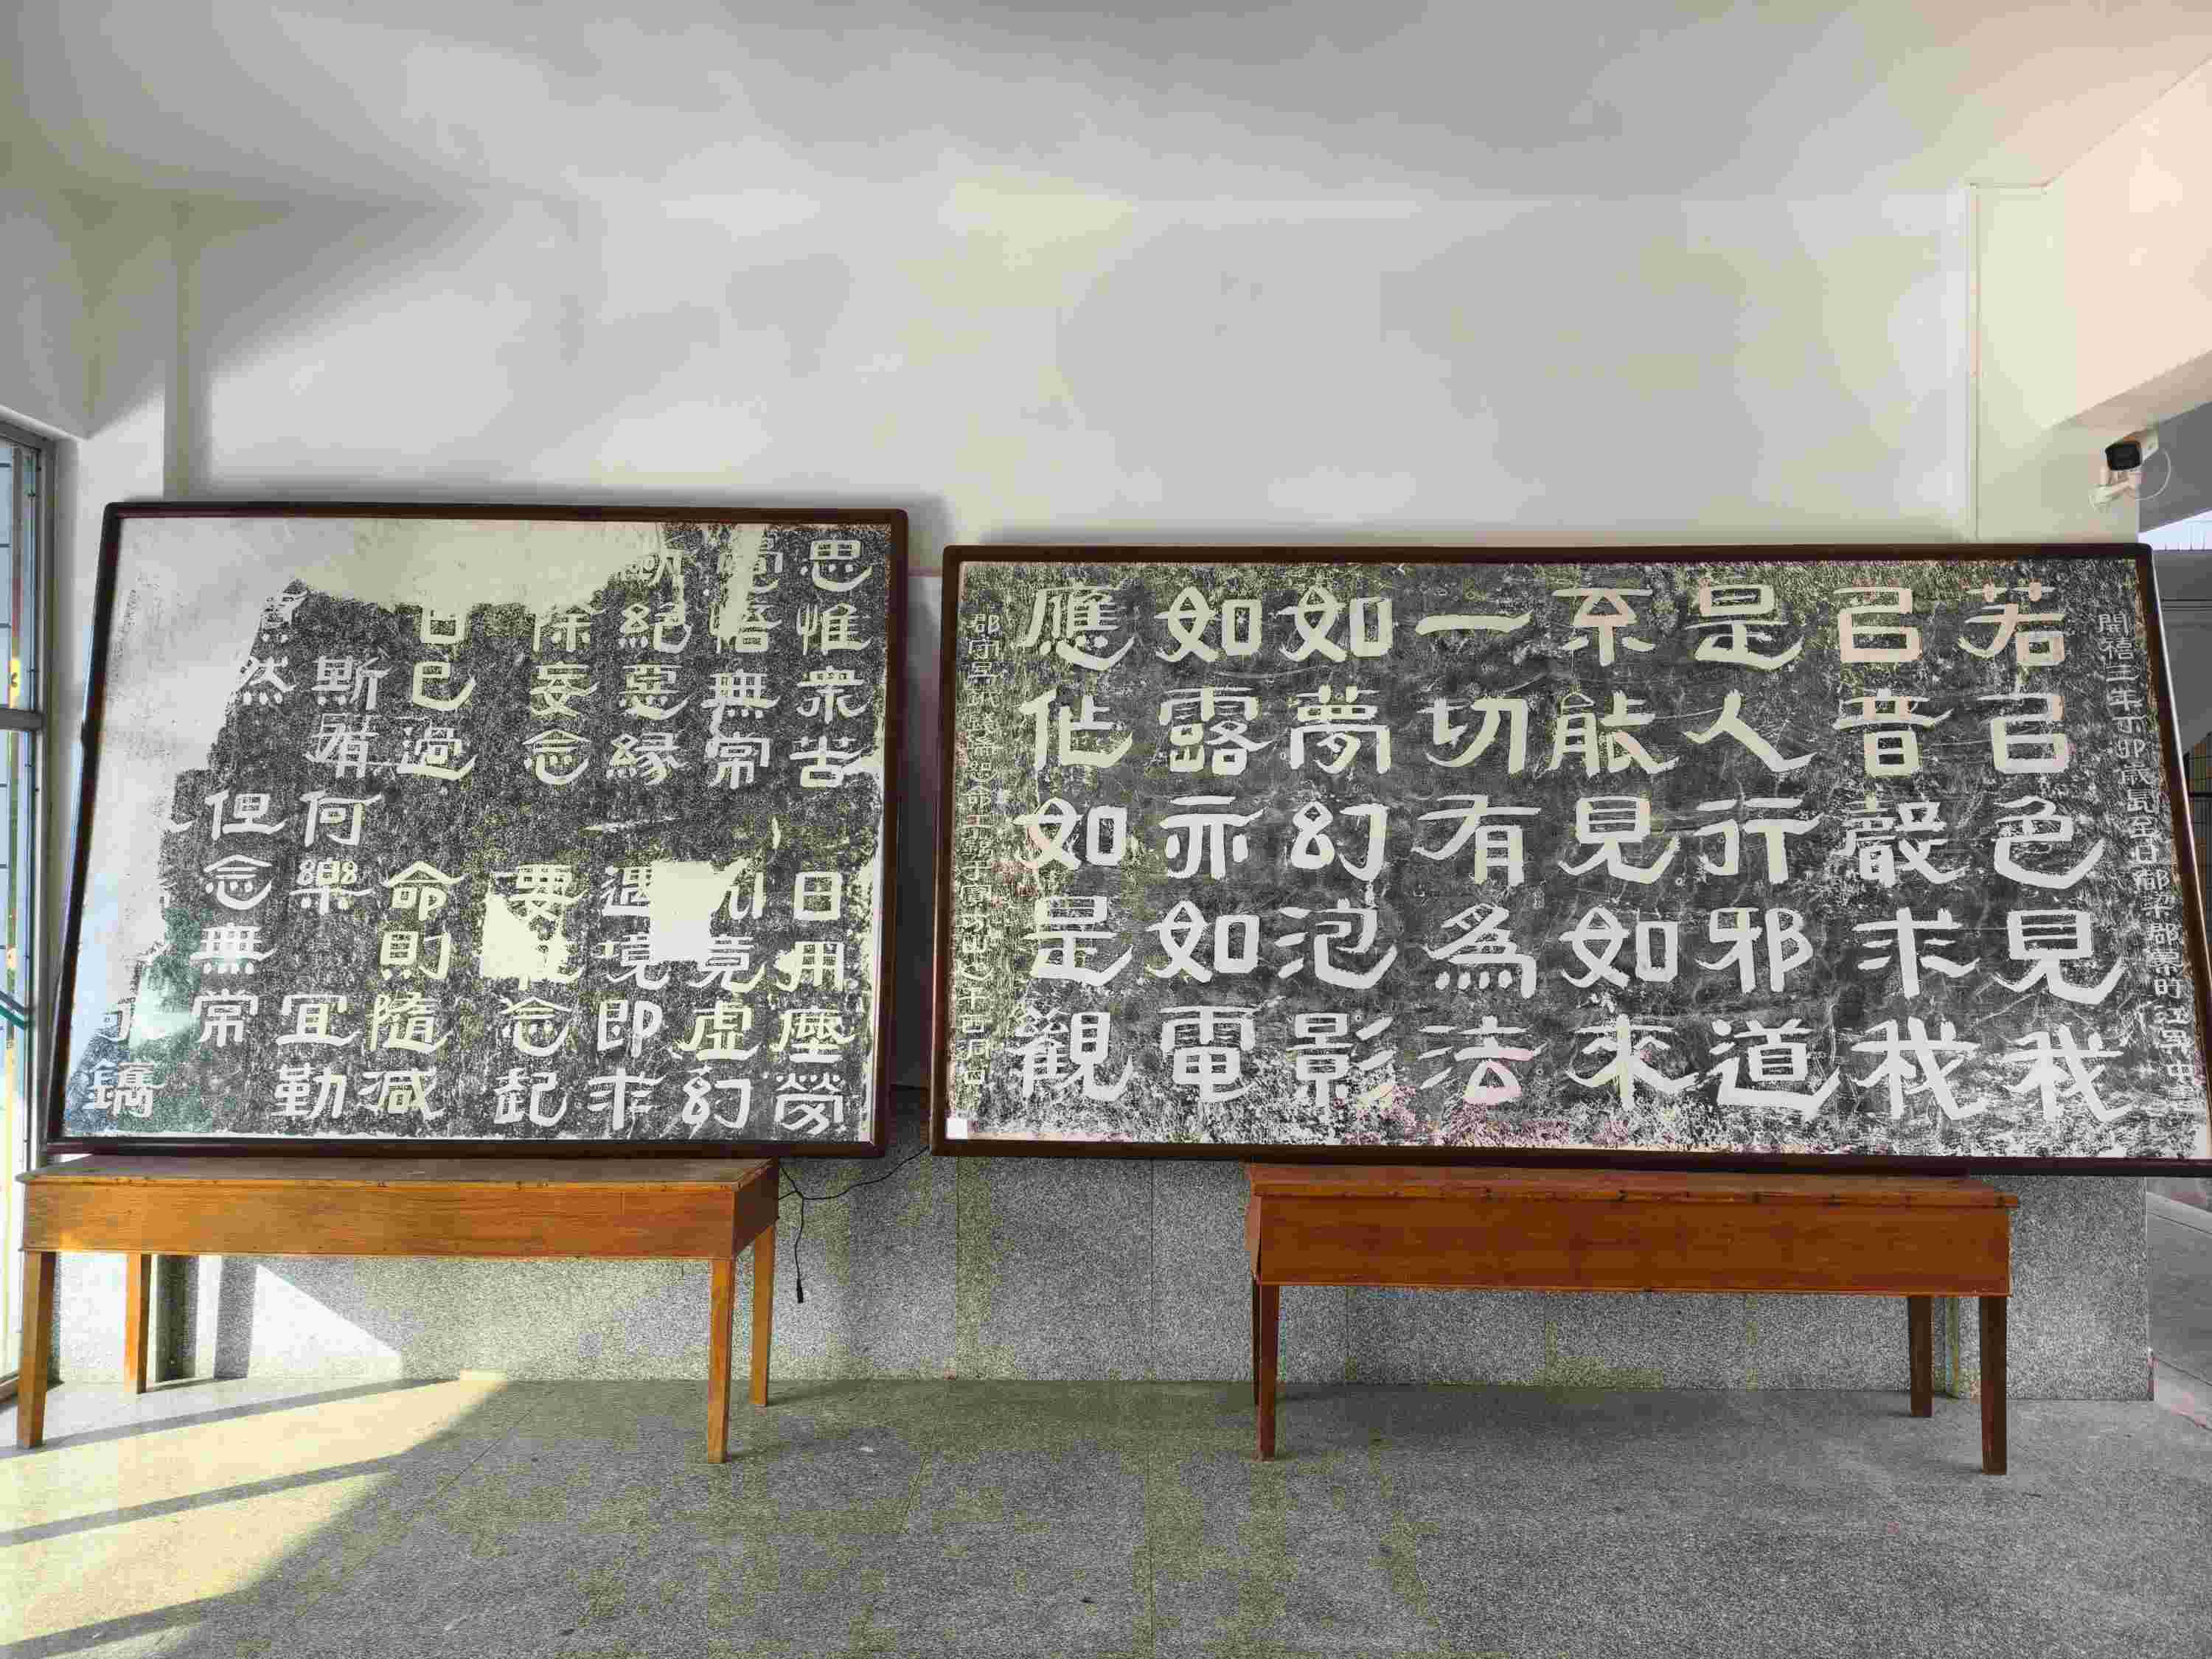 開禧三年丁卯歲長至日
若㠯色見我
㠯音聲求我
是人行邪道
不能見如來
一切有為法
如夢幻泡影
如露亦如電
應作如是觀
郡守吳
思惟衆苦 日用塵勞
覺悟無常 竟虛幻
絕惡緣 遇境即求
除妄念 要 念起
日已過 命則隨減
斯有何樂 宜勤
然 但念無常
鐫